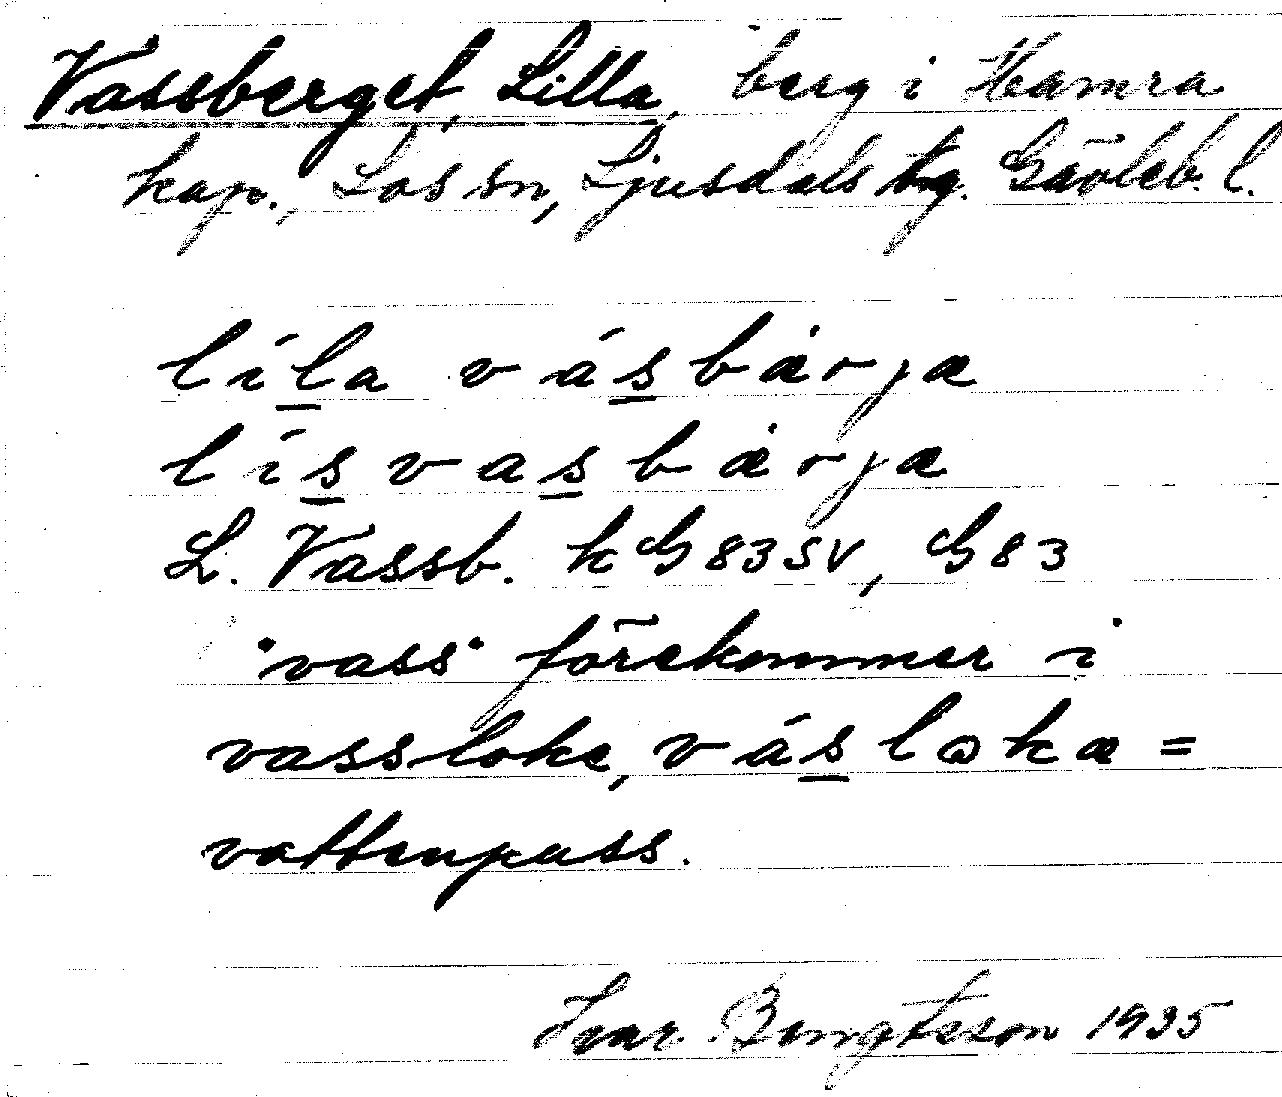 Vassberget, Lilla, berg i Hamra
kap., Los sn, Ljusdals tg. Gävleb. l.
líl̲a vás̲bärja
lís̲vas̲bärja
L. Vassb. kG83SV, G83
"vass" förekommer i
vassloke, vás̲loka =
vattenpuss.
Ivar Bengtsson 1935